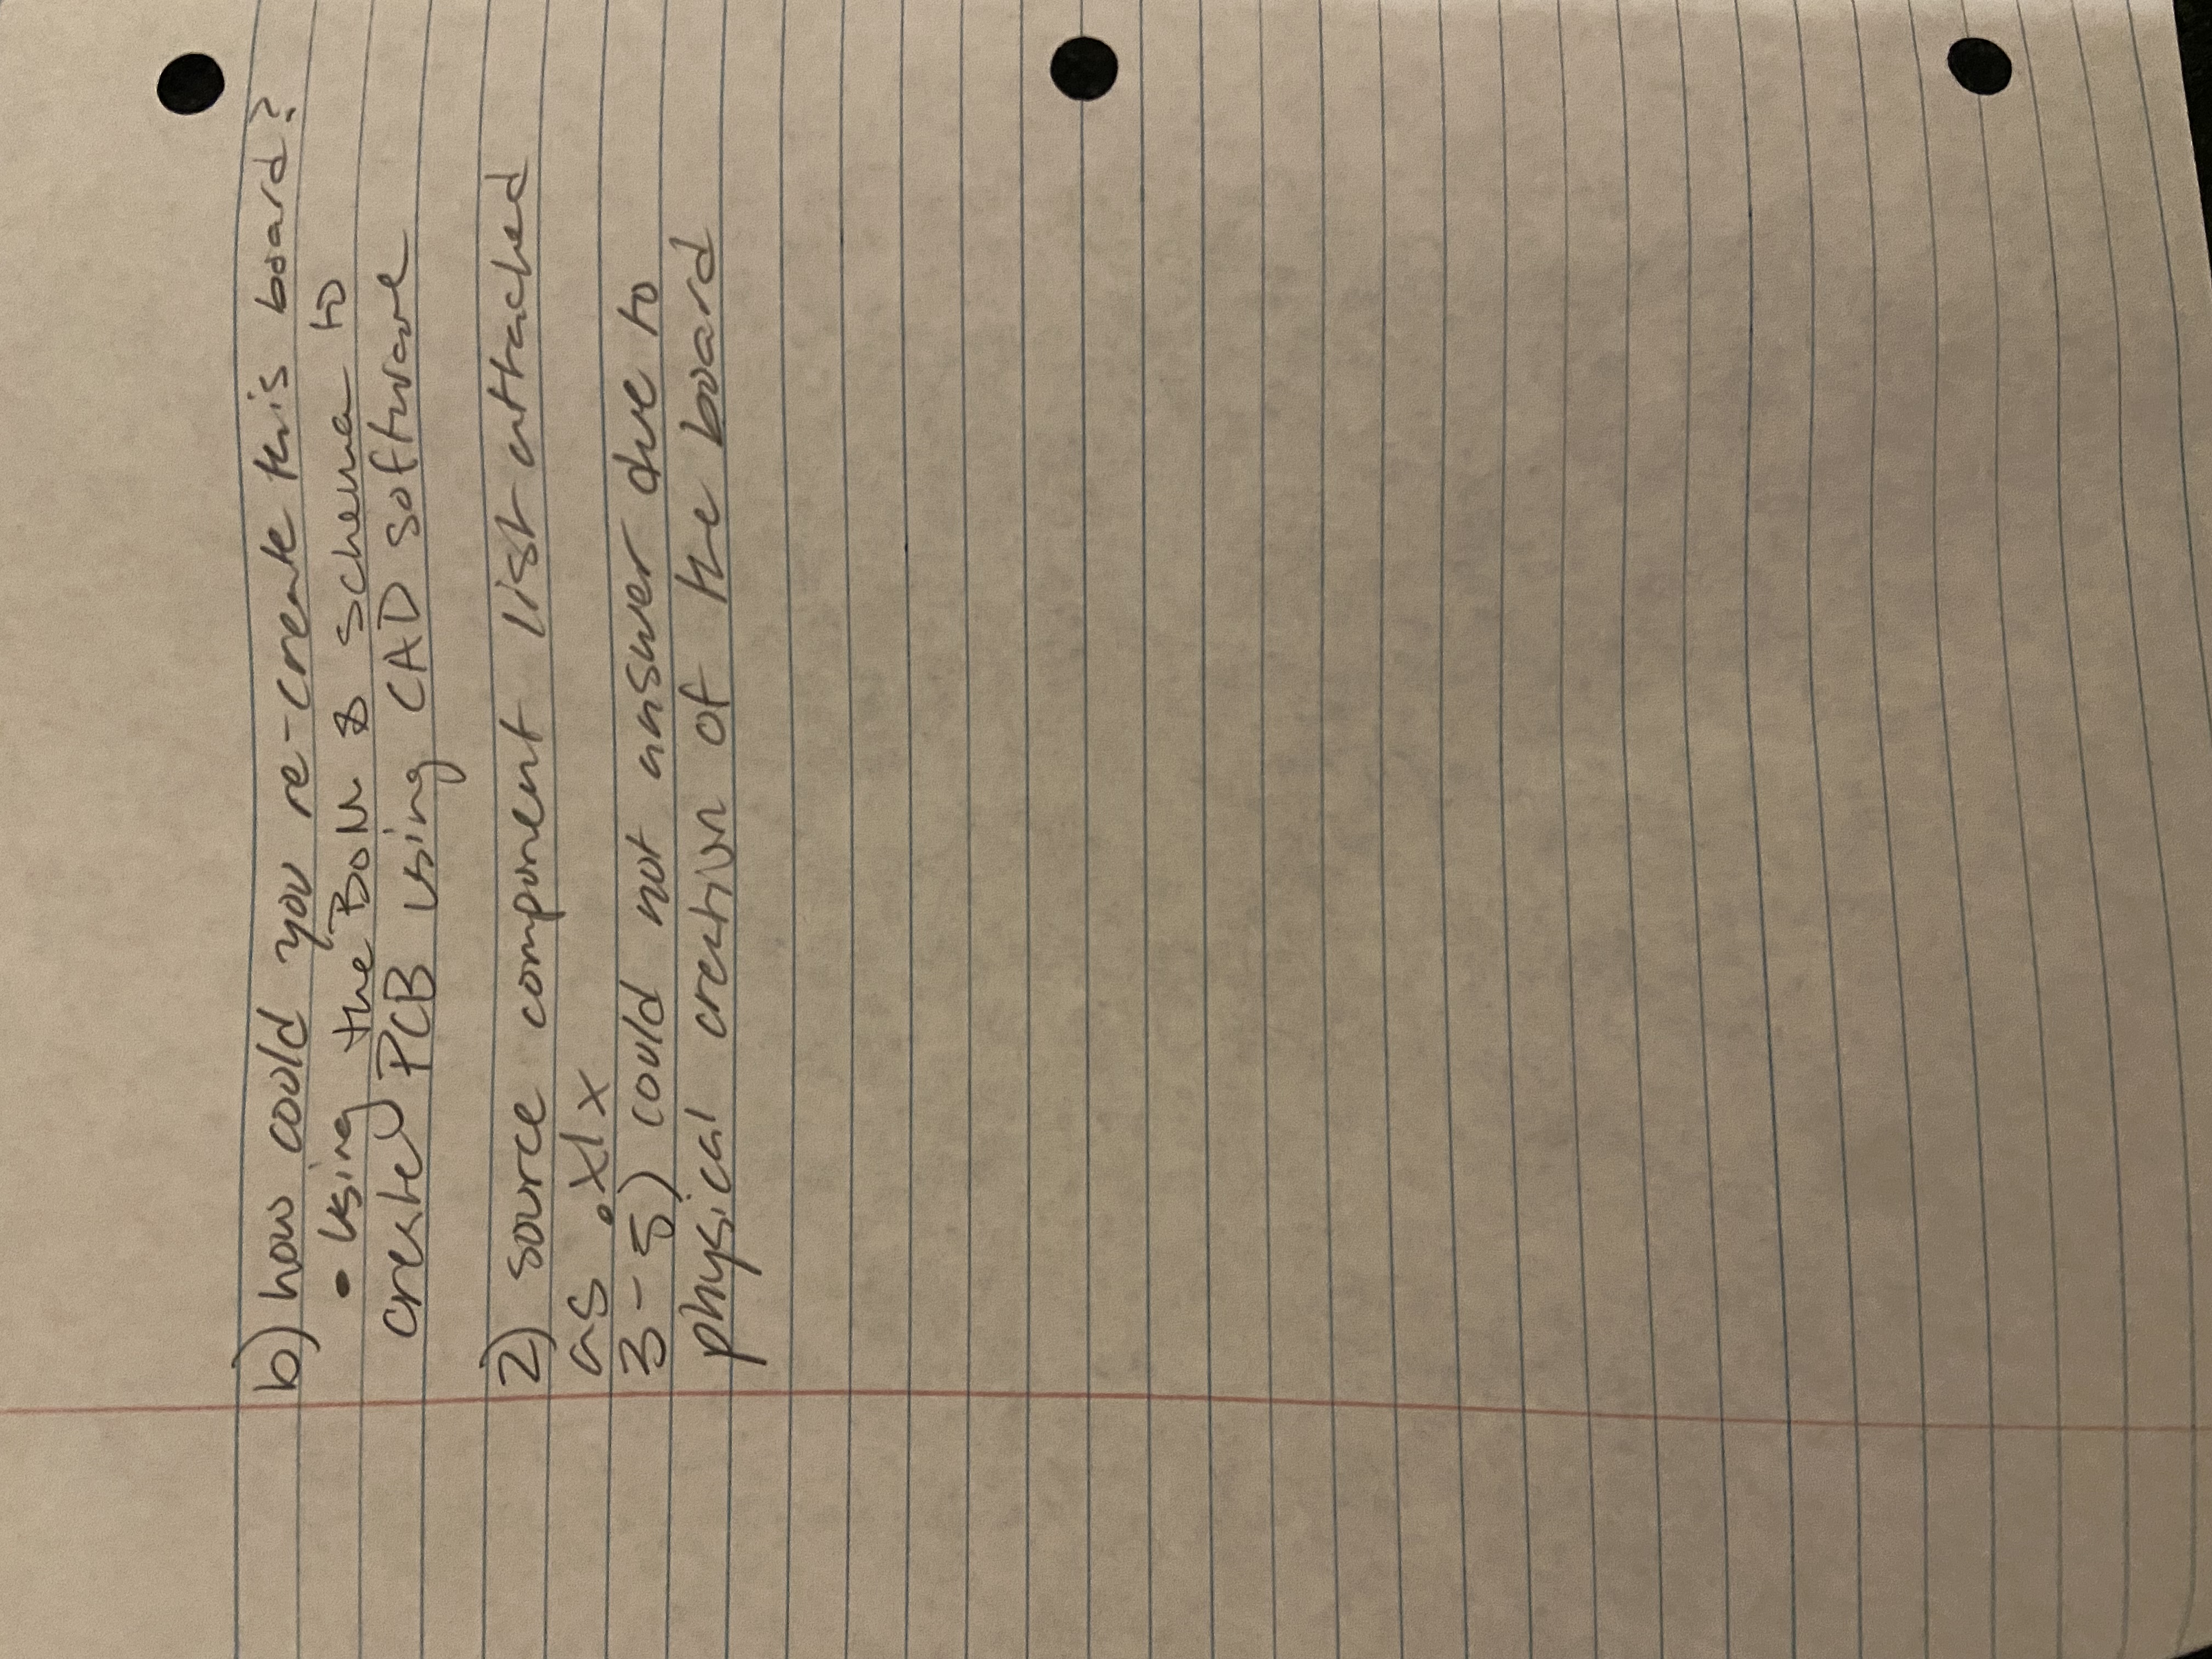 b) how could you re-create this board?
• Using the BoM & schema to
create PCB using CAD software
2) source component list attached
as .xlx
3-5) could not answer due to
physical creation of the board